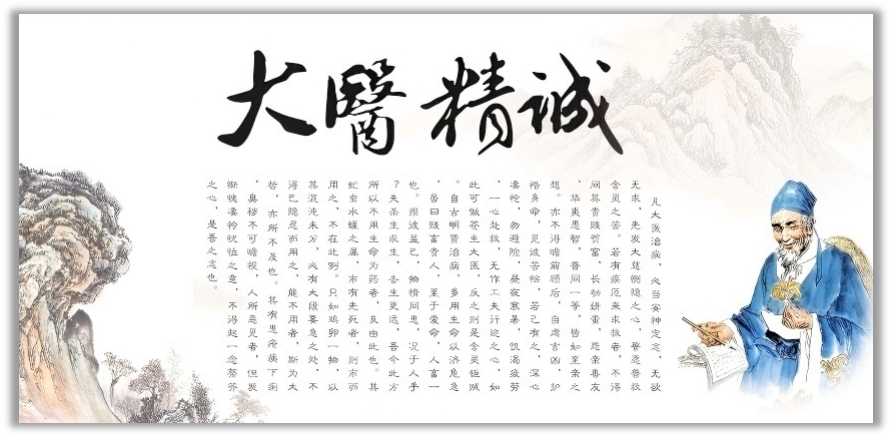 大醫精诚
凡大医治病，必当安神定志，无欲
无求，先发大慈恻隐之心，誓愿普救
含灵之苦。若有疾厄来求救者，不得
问其贵贱贫富，长幼妍蚩，怨亲善友
，华夷愚智，普同一等，皆如至亲之
想。亦不得瞻前顾后，自虑吉凶，护
惜身命，见彼苦恼，若己有之，深心
凄怆，勿避险，昼夜寒暑，饥渴疲劳
，一心赴救，无作工夫行迹之心，如
此可做苍生大医，反之则是含灵钜贼
。自古明贤治病，多用生命以济危急
，虽曰贱畜贵人，至于爱命，人畜一
也。损彼益己，物情同患，况于人乎
？夫杀生求生，去生更远，吾今此方
所以不用生命为药者，良由此也。其
虻虫水蛭之属，市有先死者，则市而
用之，不在此例。只如鸡卵一物，以
其混沌未分，必有大段要急之处，不
得已隐忍而用之，能不用者，斯为大
哲，亦所不及也。其有患疮痍下痢
，臭秽不可瞻视，人所恶见者，但发
惭愧凄怜忧恤之意，不得起一念蒂芥
之心，是吾之志也。